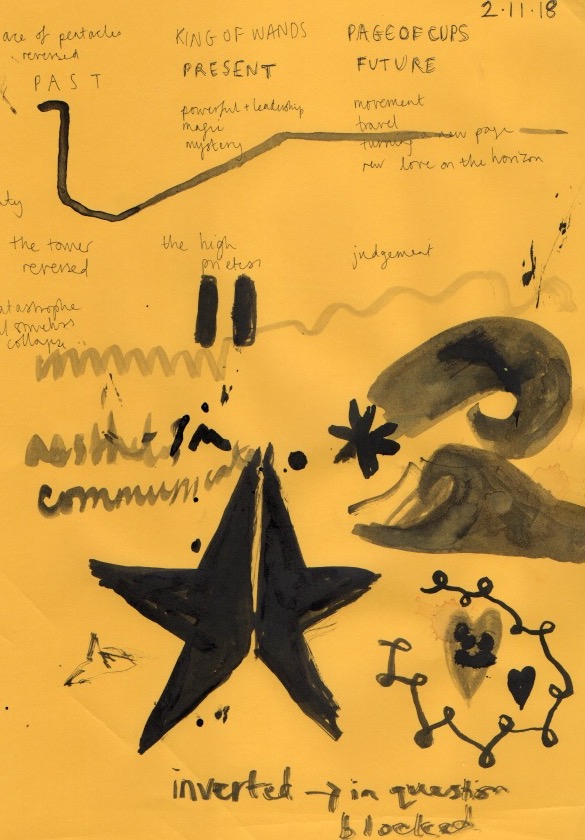 2.11.18
ace of pentacles
reversed
PAST
KING OF WANDS
PRESENT
powerful + leadership
magic
mystery
PAGE OF CUPS
FUTURE
movement
travel
turning new page
new love on the horizon
the tower
reversed
the high
priestess
judgement
catastrophe
collapse
in
communicate
inverted → in question
blocked